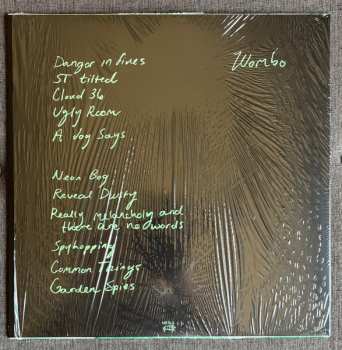 Wombo
Danger in fives
S.T. tilted
Cloud 36
Ugly Room
A dog Says
Neon Bog
Reveal Dusty
Really melancholy and
there are no words
Spyhopping
Common Things
Garden Spies